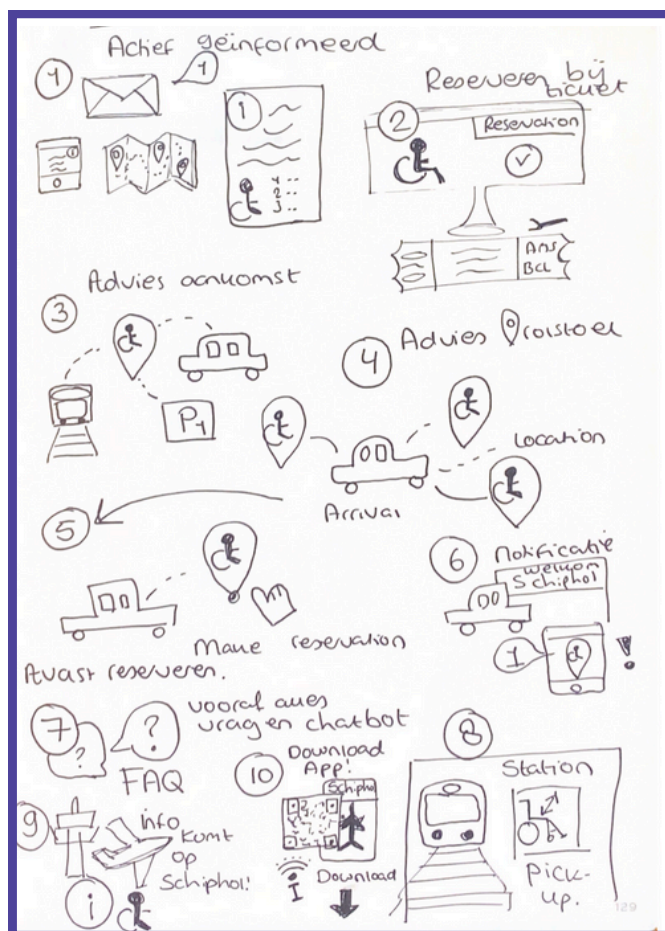 Actief geïnformeerd
1
1
i
1 --
2 --
3 --
Reserveren bij
ticket
2
Reservation
Ams
Bcl
Advies aankomst
3
P1
4
Advies rolstoel
Location
Arrival
5
Make reservation
Alvast reserveren.
6
Notificatie
Welkom
Schiphol
1
!
7
?
?
FAQ
vooraf alles
vragen chatbot
8
Station
Pick-
up.
9
info
Komt
op
Schiphol!
i
10
Download
App!
Schiphol
i
Download
129